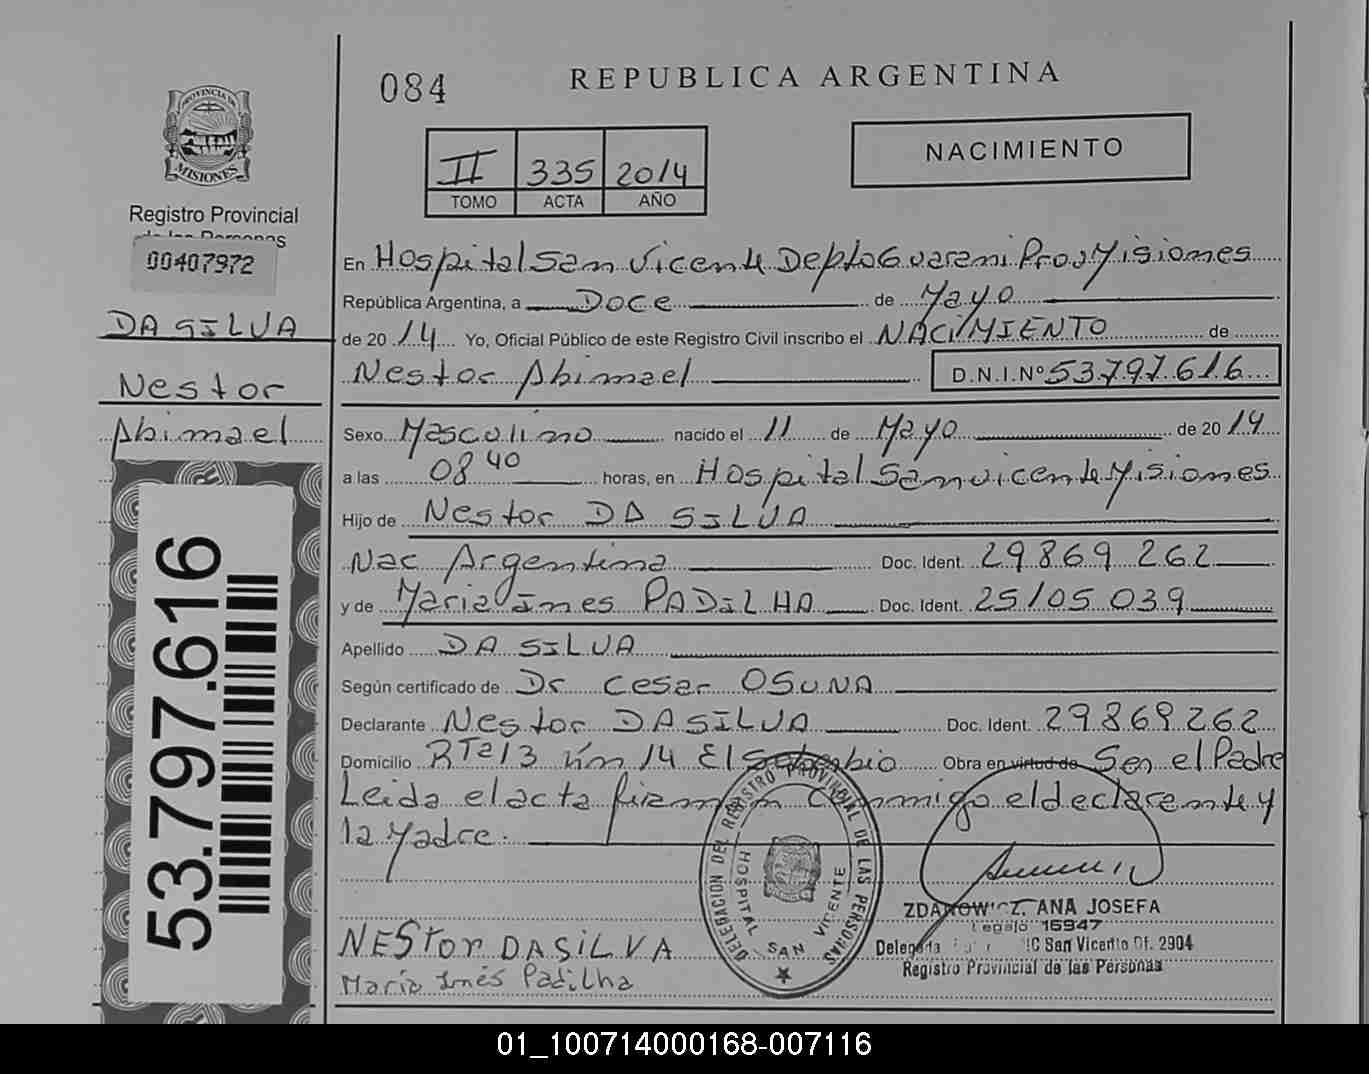 084
REPUBLICA ARGENTINA
PROVINCIA DE
MISIONES
Registro Provincial
de las Personas
00407972
II 335 2014
TOMO ACTA AÑO
NACIMIENTO
DA SILVA
Nestor
Abimael
53.797.616
En Hospital San Vicente Depto Guarani Prov Misiones
República Argentina, a Doce de Mayo
de 2014 Yo, Oficial Público de este Registro Civil inscribo el NACIMIENTO de
Nestor Abimael D.N.I.Nº 53.797.616
Sexo Masculino nacido el 11 de Mayo de 2014
a las 08 40 horas, en Hospital San vicente Misiones
Hijo de Nestor DA SILVA
Nac Argentina Doc. Ident. 29 869 262
y de Maria Ines PADILHA Doc. Ident. 25105 039
Apellido DA SILVA
Según certificado de Dr Cesar OSUNA
Declarante Nestor DA SILVA Doc. Ident. 29869262
Domicilio RTa 13 Km 14 El Soberbio Obra en virtud de Ser el Padre
Leida el acta firman conmigo el declarante y
la Madre.
DELEGACION DEL REGISTRO PROVINCIAL DE LAS PERSONAS
HOSPITAL SAN VICENTE
ANA JOSEFA
Legajo 15947
San Vicente Of. 2904
Registro Provincial de las Personas
NEStor DA SiLVA
María Inés Padilha
01_100714000168-007116